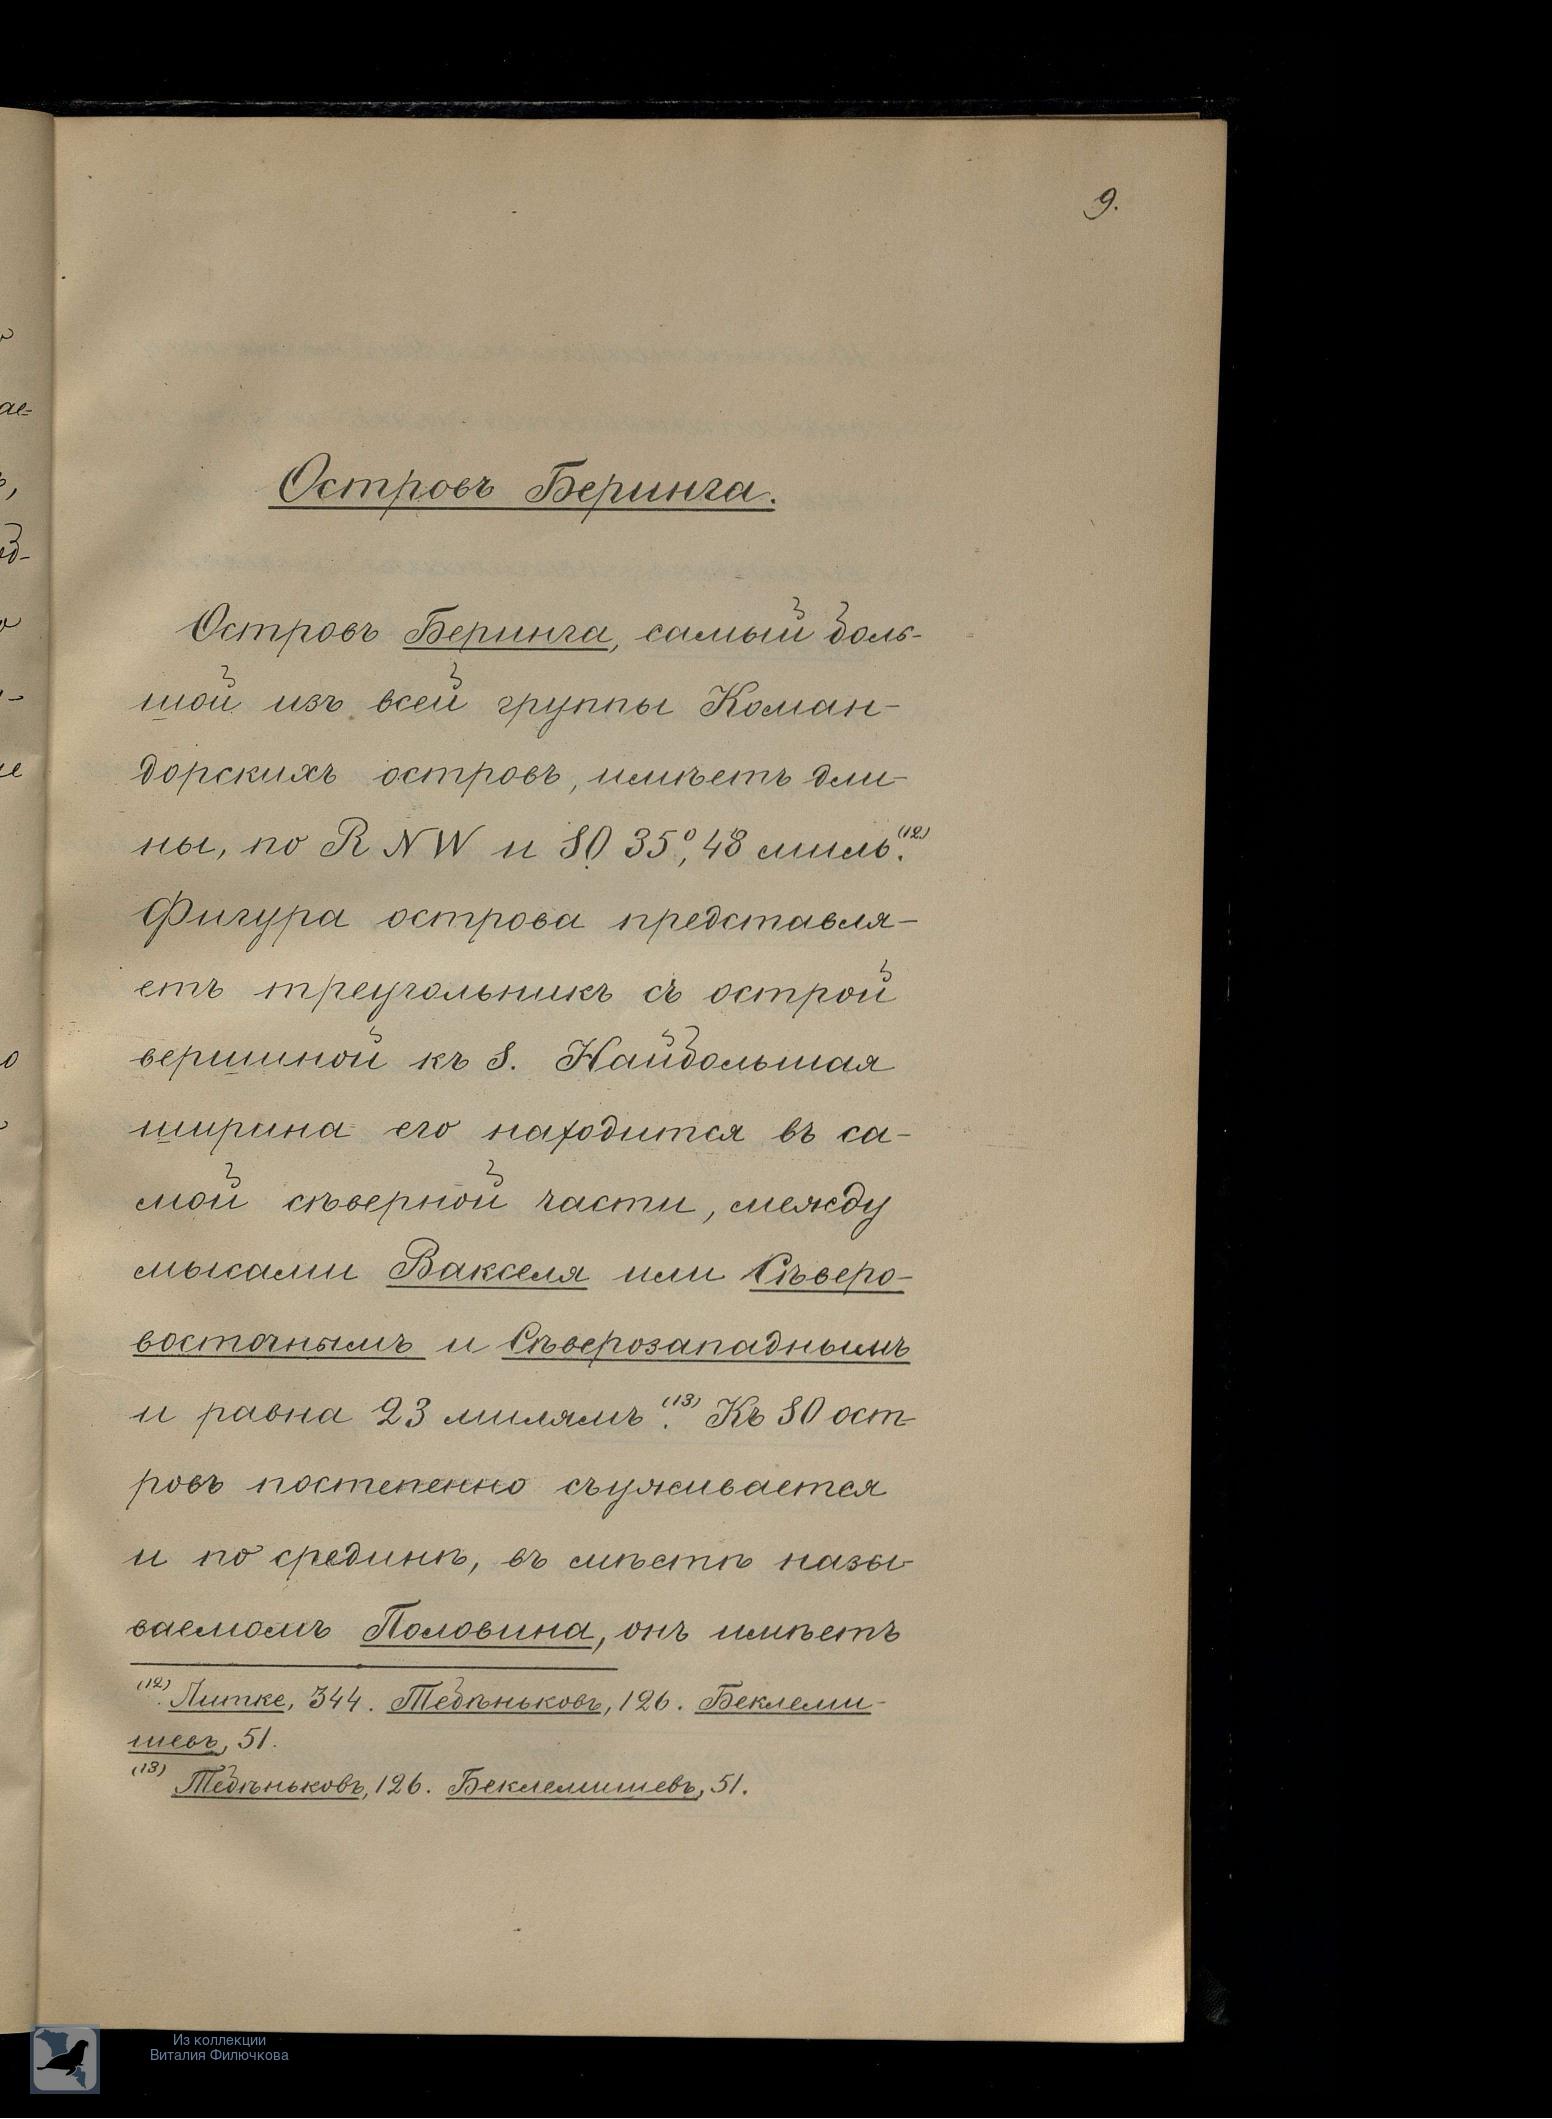 9.
Островъ Беринга.
Островъ Беринга, самый боль-
шой изъ всей группы Коман-
дорскихъ островъ, имѣетъ дли-
ны, по R NW и SO 35°, 48 миль.(12)
Фигура острова представля-
етъ треугольникъ съ острой
вершиной къ S. Найбольшая
ширина его находится въ са-
мой сѣверной части, между
мысами Вакселя или Сѣверо-
восточнымъ и Сѣверозападнымъ
и равна 23 милямъ.(13) Къ SO ост-
ровъ постепенно съуживается
и по срединѣ, въ мѣстѣ назы-
ваемомъ Половина, онъ имѣетъ
(12) Литке, 344. Тебѣньковъ, 126. Беклеми-
шевъ, 51.
(13) Тебѣньковъ, 126. Беклемишевъ, 51.
Из коллекции
Виталия Филючкова